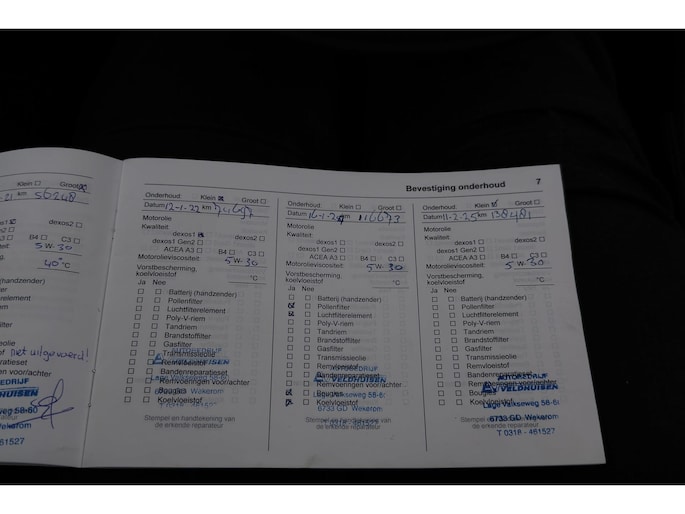 Klein Groot
-21 km 56248
dexos1 dexos2
A3 B4 C3
5W-30
40 °C
(handzender)
filter
filterelement
riem
m
offilter
ter
issieolie
of niet uitgevoerd!
paratieset
en voor/achter
EDRIJF
DHUISEN
weg 58-60
61527
Bevestiging onderhoud 7
Onderhoud: Klein Groot
Datum 12-1-22 km
Motorolie
Kwaliteit:
dexos1 dexos2
dexos1 Gen2
ACEA A3 B4 C3
Motorolieviscositeit: 5W-30
Vorstbescherming,
koelvloeistof °C
Ja Nee
Batterij (handzender)
Pollenfilter
Luchtfilterelement
Poly-V-riem
Tandriem
Brandstoffilter
Gasfilter
Transmissieolie
Remvloeistof
Bandenreparatieset
Remvoeringen voor/achter
Bougies
Koelvloeistof
Stempel en handtekening van
de erkende reparateur
Onderhoud: Klein Groot
Datum 16-1-24 km 116673
Motorolie
Kwaliteit:
dexos1 dexos2
dexos1 Gen2
ACEA A3 B4 C3
Motorolieviscositeit: 5W-30
Vorstbescherming,
koelvloeistof °C
Ja Nee
Batterij (handzender)
Pollenfilter
Luchtfilterelement
Poly-V-riem
Tandriem
Brandstoffilter
Gasfilter
Transmissieolie
Remvloeistof
AUTOBEDRIJF
Bandenreparatieset
VELDHUISEN
Remvoeringen voor/achter
Bougies
Lage Valkseweg 58-60
Koelvloeistof
6733 GD Wekerom
T 0318 - 461527
Stempel en handtekening van
de erkende reparateur
Onderhoud: Klein Groot
Datum 11-2-25 km 138481
Motorolie
Kwaliteit:
dexos1 dexos2
dexos1 Gen2
ACEA A3 B4 C3
Motorolieviscositeit: 5W-30
Vorstbescherming,
koelvloeistof °C
Ja Nee
Batterij (handzender)
Pollenfilter
Luchtfilterelement
Poly-V-riem
Tandriem
Brandstoffilter
Gasfilter
Transmissieolie
Remvloeistof
AUTOBEDRIJF
Bandenreparatieset
VELDHUISEN
Remvoeringen voor/achter
Bougies
Lage Valkseweg 58-60
Koelvloeistof
6733 GD Wekerom
T 0318 - 461527
Stempel en handtekening van
de erkende reparateur